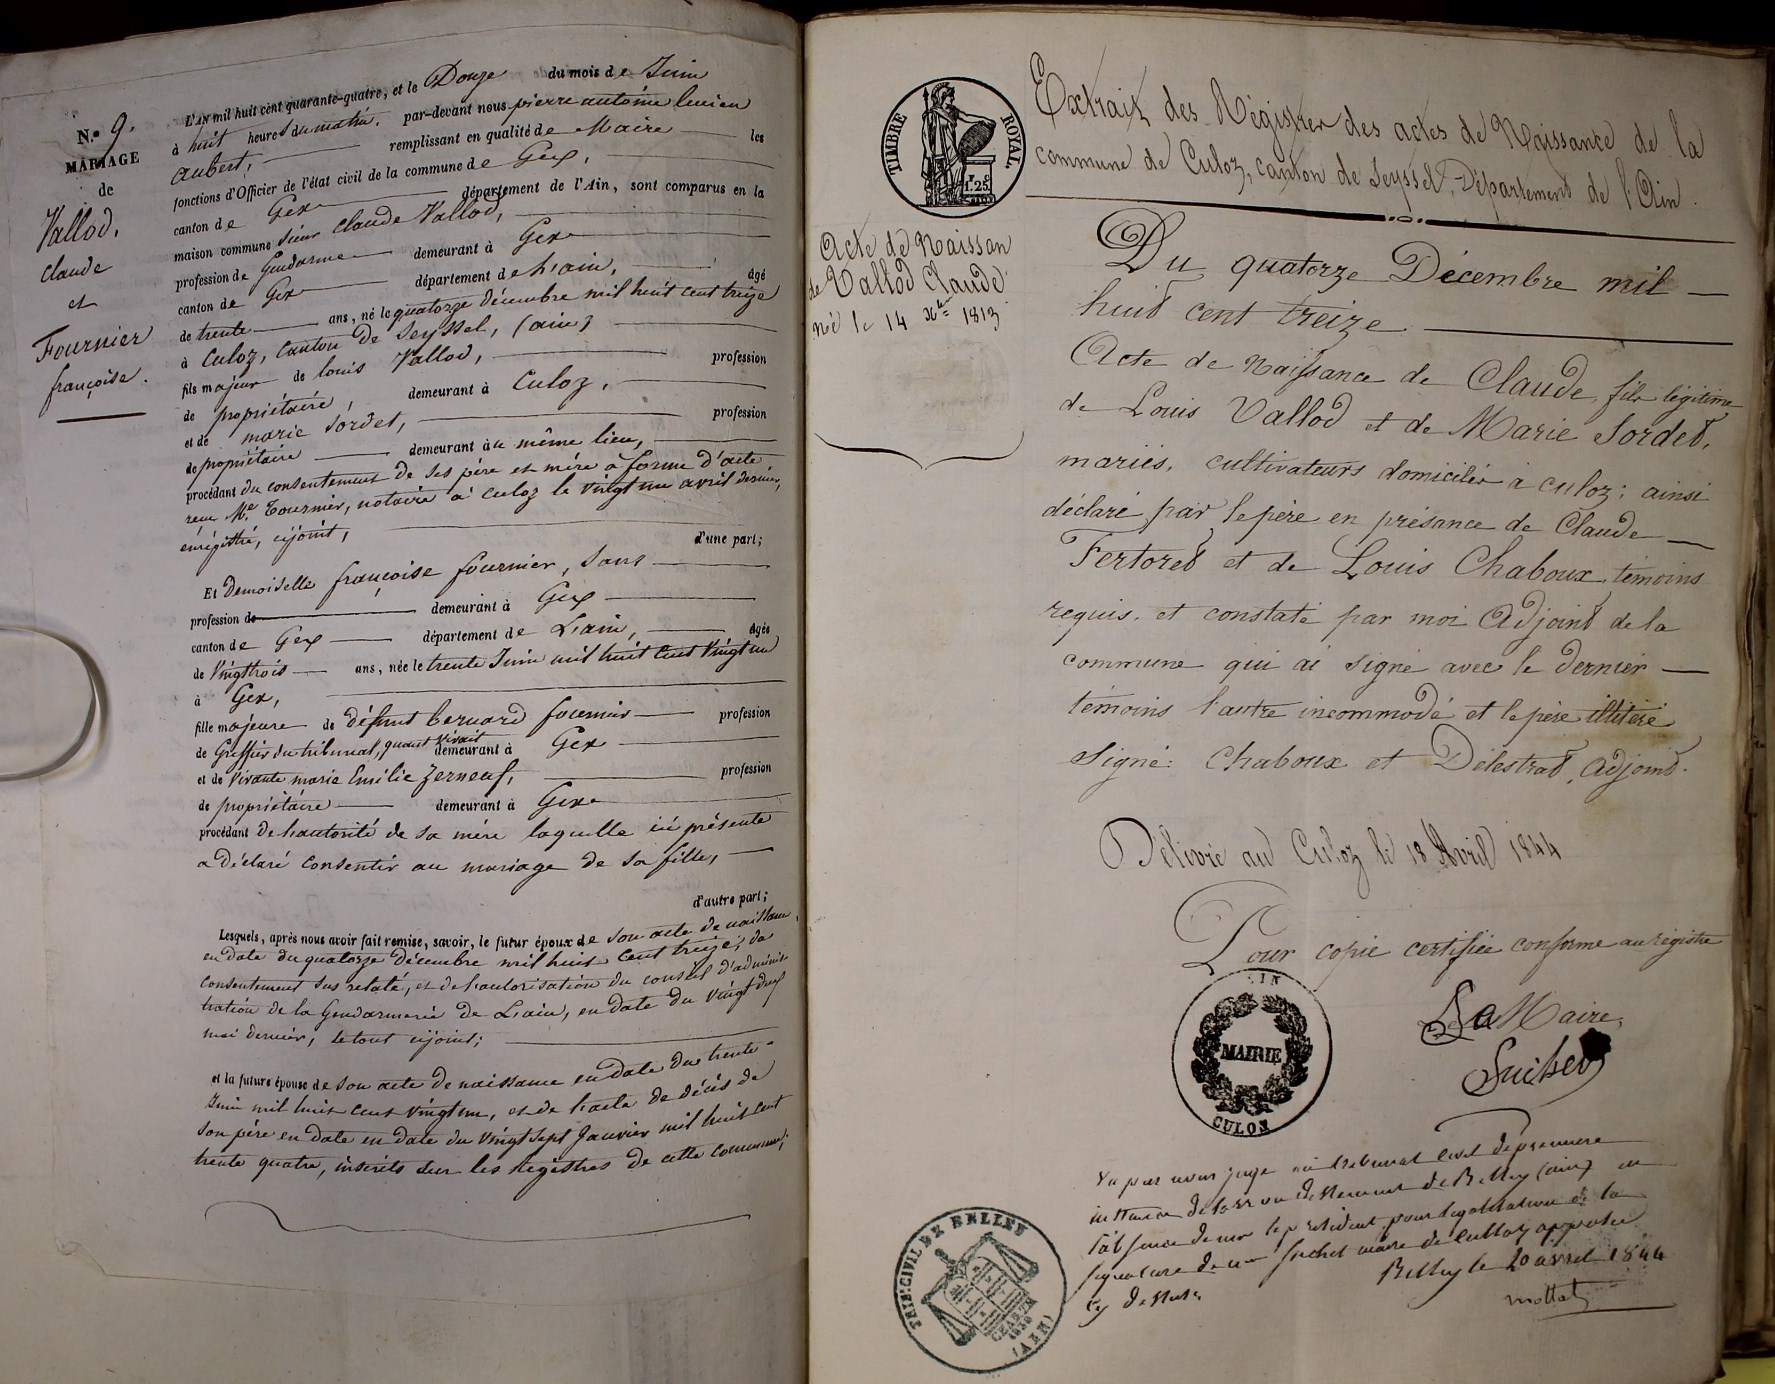 N.º 9.
MARIAGE
de
Vallod,
claude
et
Fournier
françoise.
L'AN mil huit cent quarante-quatre, et le Douze du mois de Juin
à huit heures du matin, par-devant nous pierre antoine lucien
aubert, remplissant en qualité de Maire les
fonctions d'Officier de l'état civil de la commune de Gex,
canton de Gex département de l'Ain, sont comparus en la
maison commune Sieur Claude Vallod,
profession de Gendarme demeurant à Gex
canton de Gex département de L'ain, âgé
de trente ans, né le quatorze décembre mil huit cent treize
à Culoz, Canton de Seyssel, (ain)
fils majeur de louis Vallod, profession
de propriétaire, demeurant à Culoz,
et de marie Sordet, profession
de propriétaire demeurant àu même lieu,
procédant du consentement de ses père et mère à forme d'acte
reçu Me. Tournier, notaire à culoz le vingt un avril dernier,
enrégistré, cijoint,
d'une part;
Et demoiselle françoise fournier, sans
profession de demeurant à Gex
canton de Gex département de L'ain, âgée
de vingttrois ans, née le trente Juin mil huit Cent Vingt un
à Gex,
fille majeure de défunt bernard fournier profession
de Greffier du tribunal, quant vivait demeurant à Gex
et de vivante marie Emilie Zerneuf, profession
de propriétaire demeurant à Gex
procédant de L'autorité de sa mère laquelle ici présente
a déclaré consentir au mariage de sa fille,
d'autre part;
Lesquels, après nous avoir fait remise, savoir, le futur époux de son acte de naissance,
en date du quatorze Décembre mil huit Cent treize, du
consentement sus relaté, et de L'autorisation du conseil d'adminis
tration de la Gendarmerie de L'ain, en date du vingt deux
mai dernier, le tout cijoint;
et la future épouse de son acte de naissance en date du trente
Juin mil huit cent vingt un, et de L'acte de décès de
son père en date en date du vingt sept Janvier mil huit cent
trente quatre, inscrits sur les Registres de cette commune;
TIMBRE ROYAL
1.25
Extrait des Régistres des actes de Naissance de la
commune de Culoz, canton de Seyssel, Département de l'Ain.
Acte de Naissan
de Vallod Claude
né le 14 Xbre 1813
Du quatorze Décembre mil
huit cent treize
Acte de Naissance de Claude, fils légitime
de Louis Vallod et de Marie Sordet,
mariés, cultivateurs domiciliés à culoz; ainsi
déclaré par le père en présance de Claude
Fertoret et de Louis Chaboux témoins
requis. et constaté par moi Adjoint de la
commune qui ai signé avec le dernier
témoins l'autre incommodé et le père illitéré
Signé: Chaboux et Délestrat, Adjoint.
Délivré au Culoz le 18 Avril 1844
Pour copie certifiée conforme au régistre
Le Maire,
Suchet
AIN
MAIRIE
CULOZ
Vu par nous juge au tribunal civil de première
instance de l'arrondissement de Belley (ain) en
l'absence de mr le président pour légalisation de la
signature de mr Suchet maire de Culloz apposée
cy dessus
Belley le 20 avril 1844
mottat
TRIB: CIVIL DE BELLEY
CHARTE
1830
(AIN)